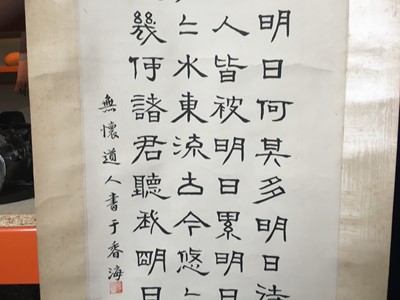 明日何其多明日待
人皆被明日累明日
〻水東流古今悠〻
幾何諸君聽我朙日
無懷道人書于香海